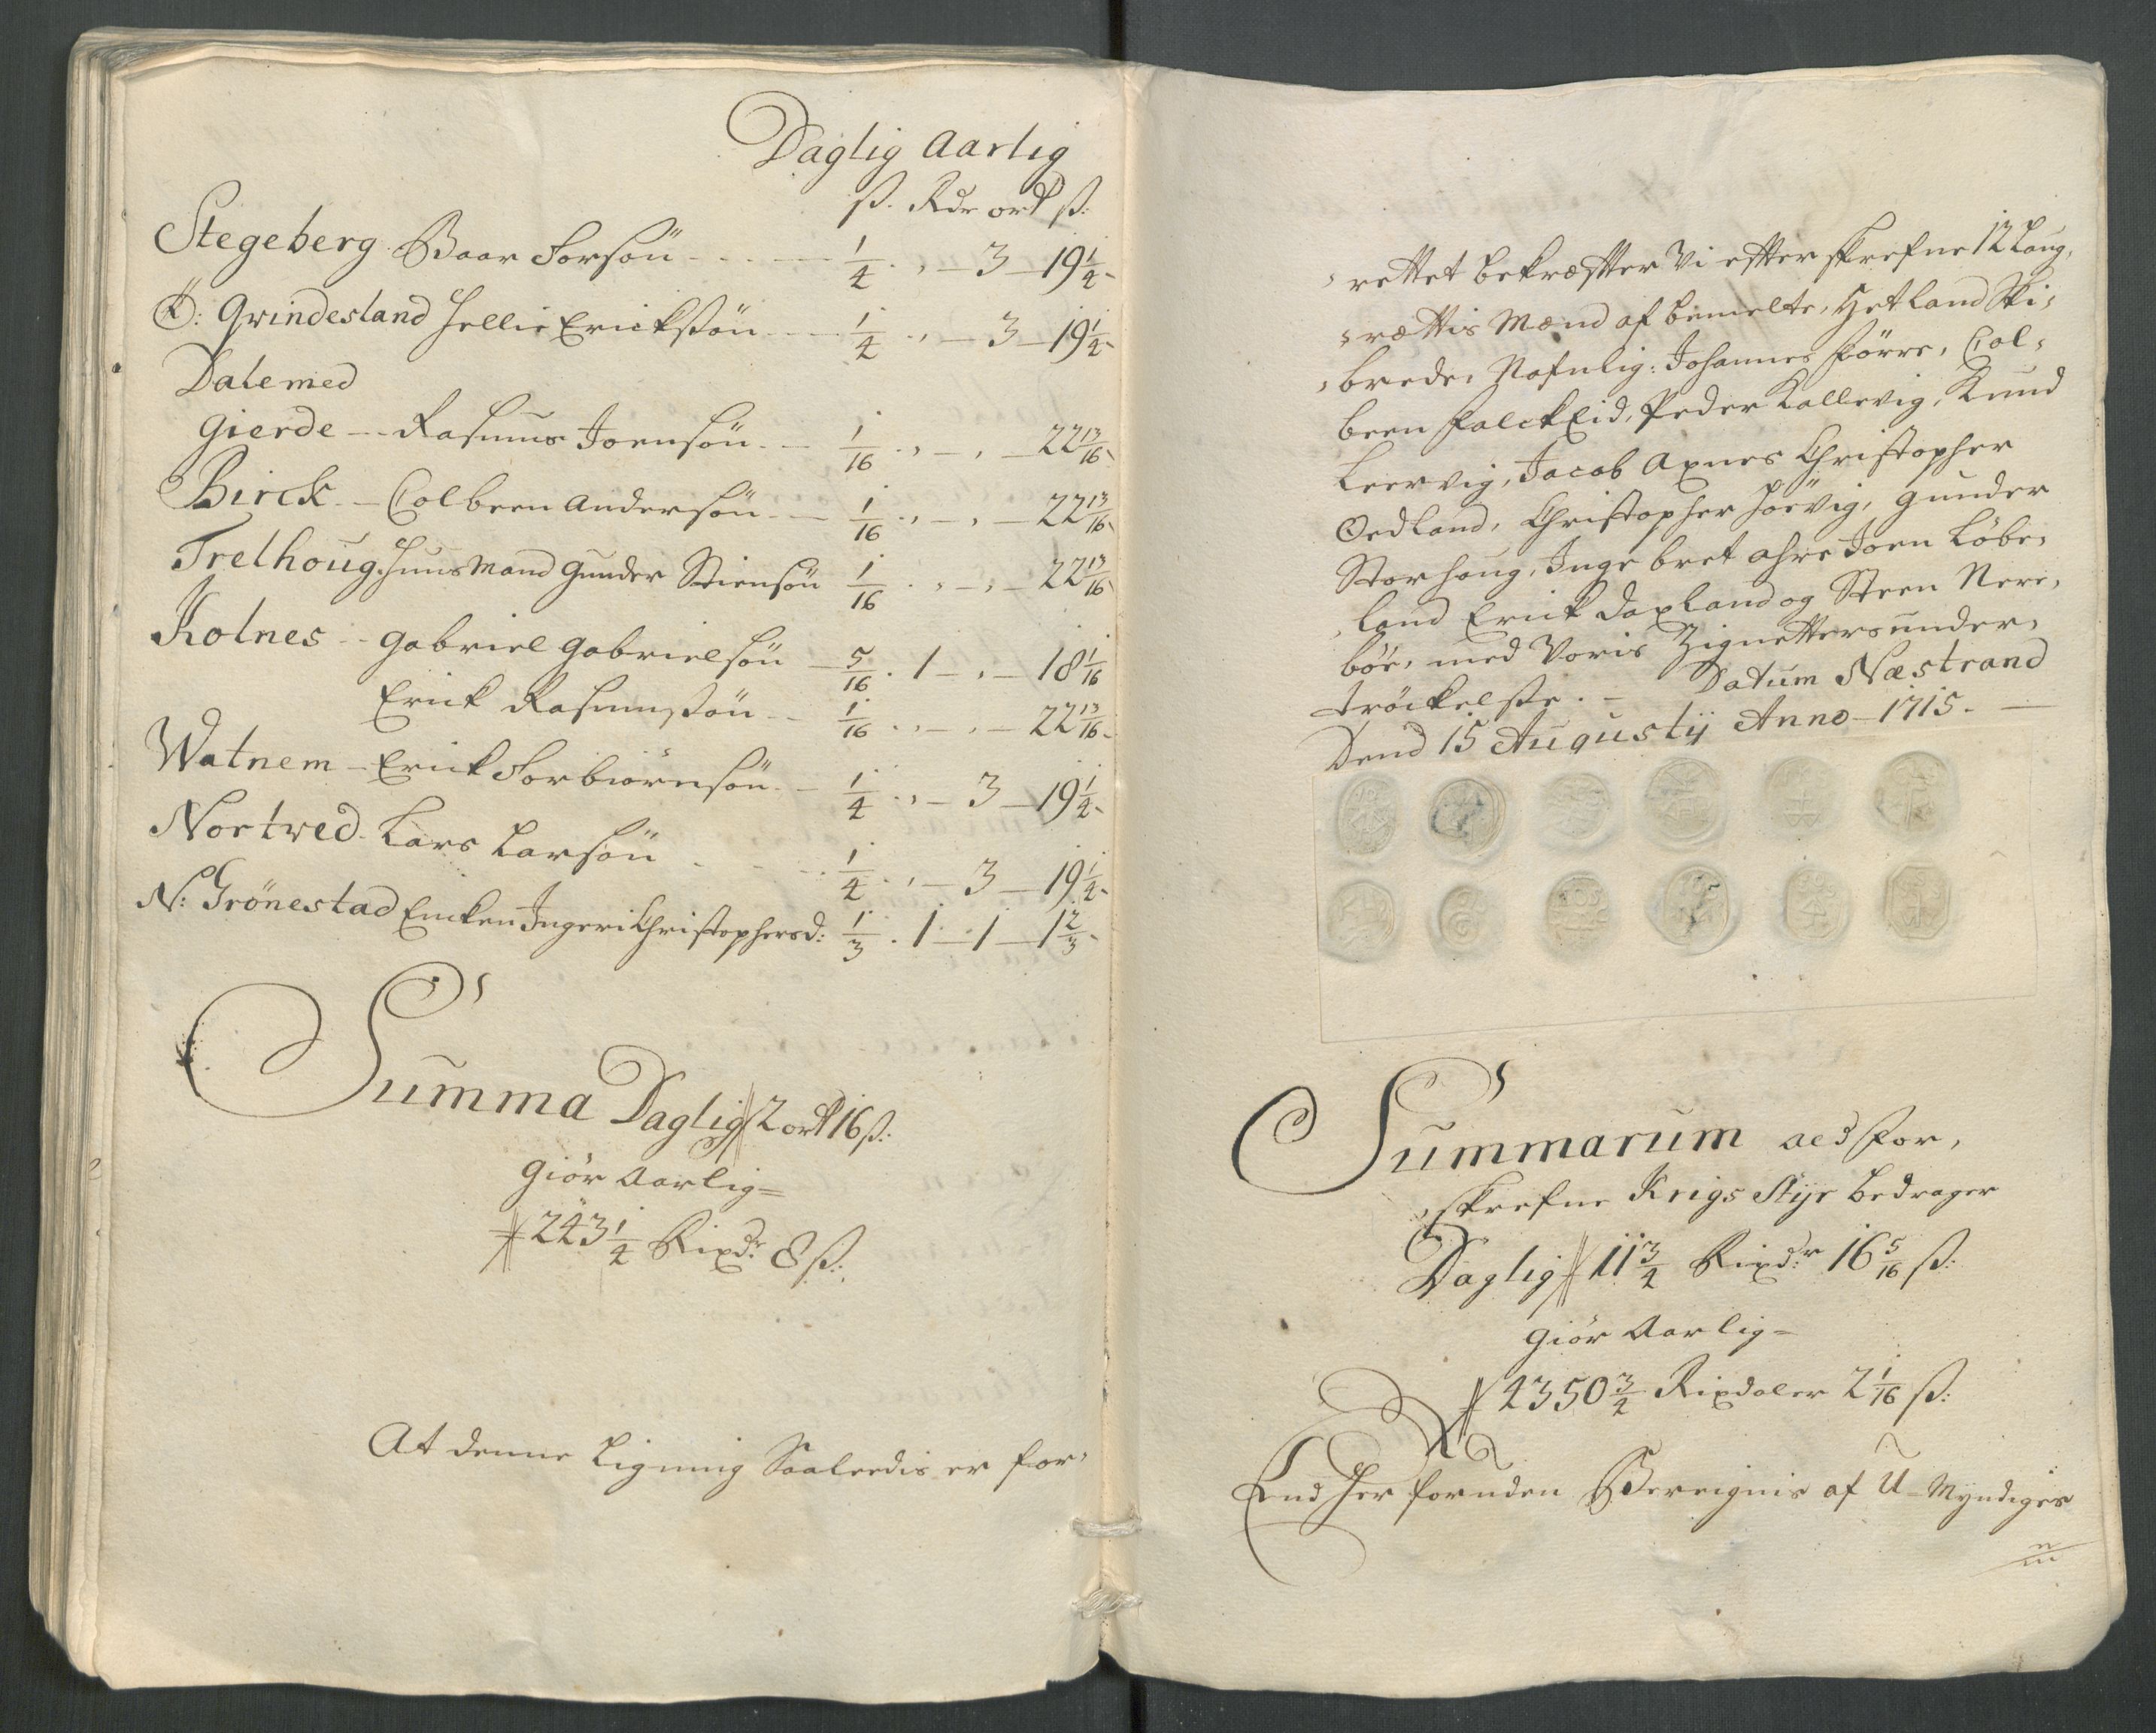 Daglig Aarlig
ß. Rdr ort ß:
Stegeberg Baar Torsön - - - 1/4 . , – 3 – 19 1/4 -
Ö: Qvindesland Hellie Erickßön - - 1/4 . , – 3 – 19 1/4 -
Dale med
Gierde - - Rasmus Joensön - - 1/16 . , – , – 22 13/16 -
Birck - - Colbeen Andersön - - 1/16 . , – , – 22 13/16 -
Trelhoug. Huusmand Gunder Stiensön 1/16 . , – , – 22 13/16
Kolnes - - Gabriel Gabrielsön - 5/16 . 1 – , – 18 1/16
Erick Rasmusßön - - 1/16 . , – , – 22 13/16 -
Watnem - Erick Torbiörnsön - - 1/4 . , – 3 – 19 1/4 -
Nortved - Lars Larsön - - - 1/4 . , – 3 – 19 1/4 -
N: Grönestad Encken Ingeri Christophersd: 1/3 . 1 – 1 – 1 2/3 -
Summa Daglig 2 ort 16 ß:
Giör Aarlig =
243 1/4 Rixdr 8 ß:
At denne Ligning Saaledis er for,
rettet bekræfter Vi efter skrefne 12 Laug,
rættis Mænd af bemelte, Hetland Ski,
brede, Nafnlig: Johannes Förre, Col,
been FalckEid, Peder Kallevig, Knud
Leervig, Jacob Axnes Christopher
Oedland, Christopher Hoëvig, Gunder
Storhoug, Ingebret Ahre Joen Löbe,
land Erick Daxland og Steen Nere,
böe, med Voris Zignetters under,
tröckelße. - Datum Næstrand
Dend 15 Augustij Anno - 1715. -
Summarum aed for,
skrefne Krigs Styr bedrager
Daglig 11 3/4 Rixdr 16 5/16 ß:
Giör Aarlig =
4350 3/4 Rixdaler 2 1/16 ß:
End her foruden Bereignis af U-Myndiges